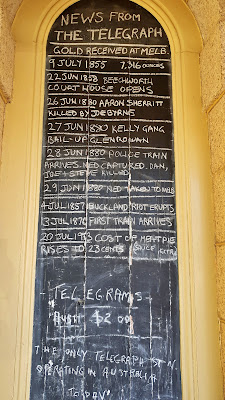 NEWS FROM
THE TELEGRAPH
GOLD RECEIVED AT MELB.
9 JULY 1855 7,316 OUNCES
22 JUN 1858 BEECHWORTH
COURT HOUSE OPENS
26 JUN 1880 AARON SHERRITT
KILLED BY JOE BYRNE
27 JUN 1880 KELLY GANG
BAIL-UP GLENROWAN
28 JUN 1880 POLICE TRAIN
ARRIVES. NED CAPTURED. DAN,
JOE + STEVE KILLED
29 JUN 1880 NED TAKEN TO MELB
4 JUL 1857 BUCKLAND RIOT ERUPTS
13 JUL 1876 FIRST TRAIN ARRIVES
20 JUL COST OF MEAT PIE
RISES TO 23 CENTS (SAUCE EXTRA)
TELEGRAMS
$2.00
THE ONLY TELEGRAPH STN
OPERATING IN AUSTRALIA
TODAY